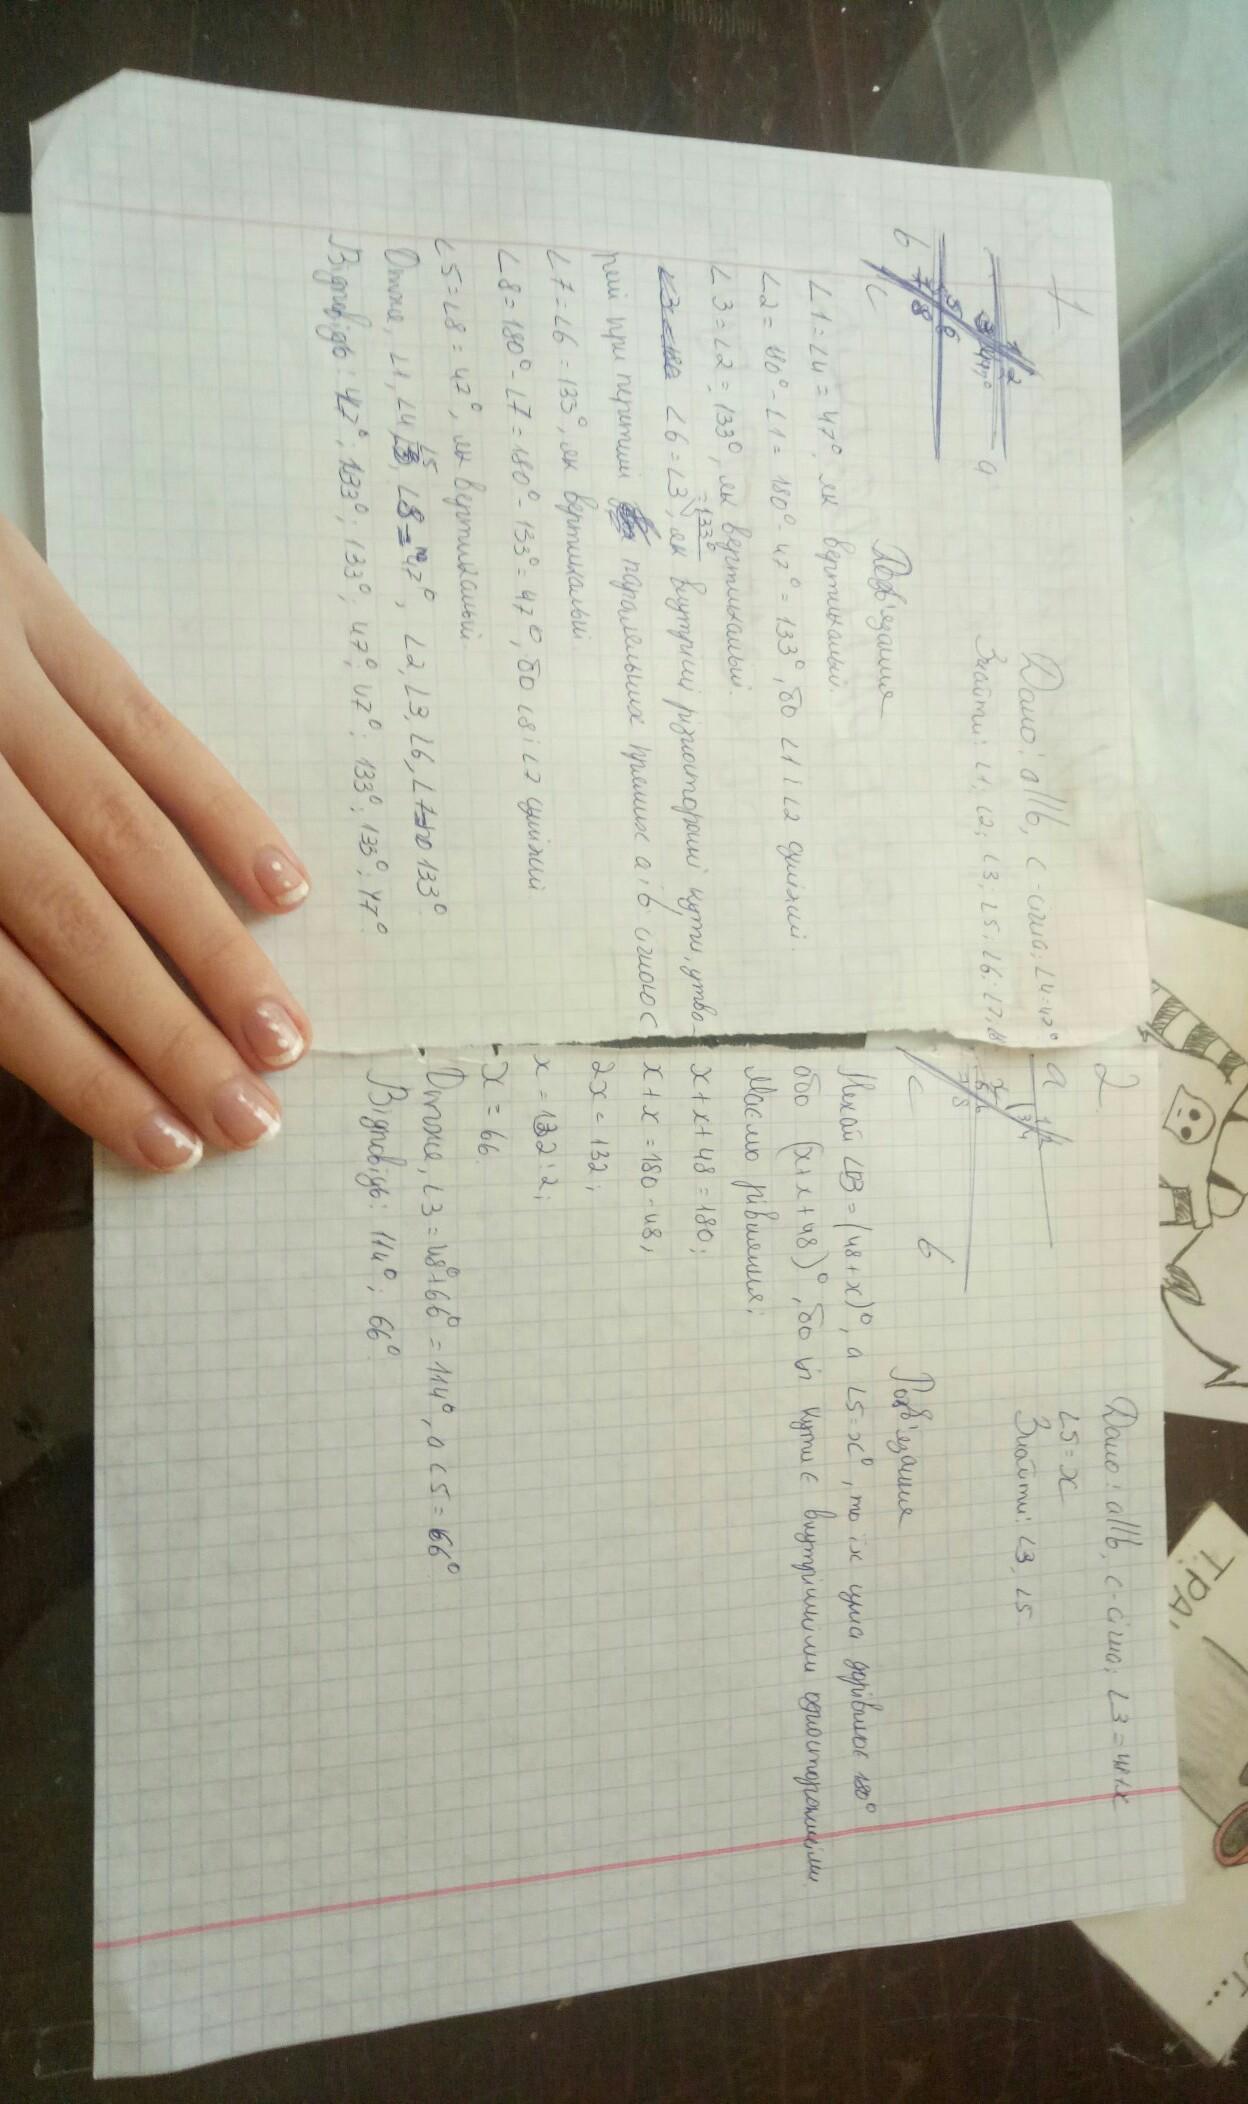 1
Дано: a||b, c-січна; ∠4=47°
Знайти: ∠1; ∠2; ∠3; ∠5; ∠6; ∠7;
1 2
3 47° a
5 6
7 8
b
c
Розв'язання
∠1=∠4=47°, як вертикальні.
∠2=180°-∠1=180°-47°=133°, бо ∠1 і ∠2 суміжні.
∠3=∠2=133°, як вертикальні.
=133°
∠6=∠3, як внутрішні різносторонні кути, утво-
рені при перетині паралельних прямих a і b січною c
∠7=∠6=133°, як вертикальні.
∠8=180°-∠7=180°-133°=47°, бо ∠8 і ∠7 суміжні
∠5=∠8=47°, як вертикальні.
∠5
Отже, ∠1, ∠4, ∠8 по 47°, ∠2, ∠3, ∠6, ∠7 по 133°
Відповідь: 47°; 133°; 133°; 47°; 47°; 133°; 133°; 47°.
2.
Дано: a||b, c-січна;
∠5=x
Знайти: ∠3, ∠5
a
b
c
Розв'язання
Нехай ∠3=(48+x)°, а ∠5=x°, то їх сума дорівнює 180°
або (x+x+48)°, бо ці кути є внутрішніми односторонніми
Маємо рівняння:
x+x+48=180;
x+x=180-48;
2x=132;
x=132:2;
x=66.
Отже, ∠3=48°+66°=114°, а ∠5=66°
Відповідь: 114°; 66°.